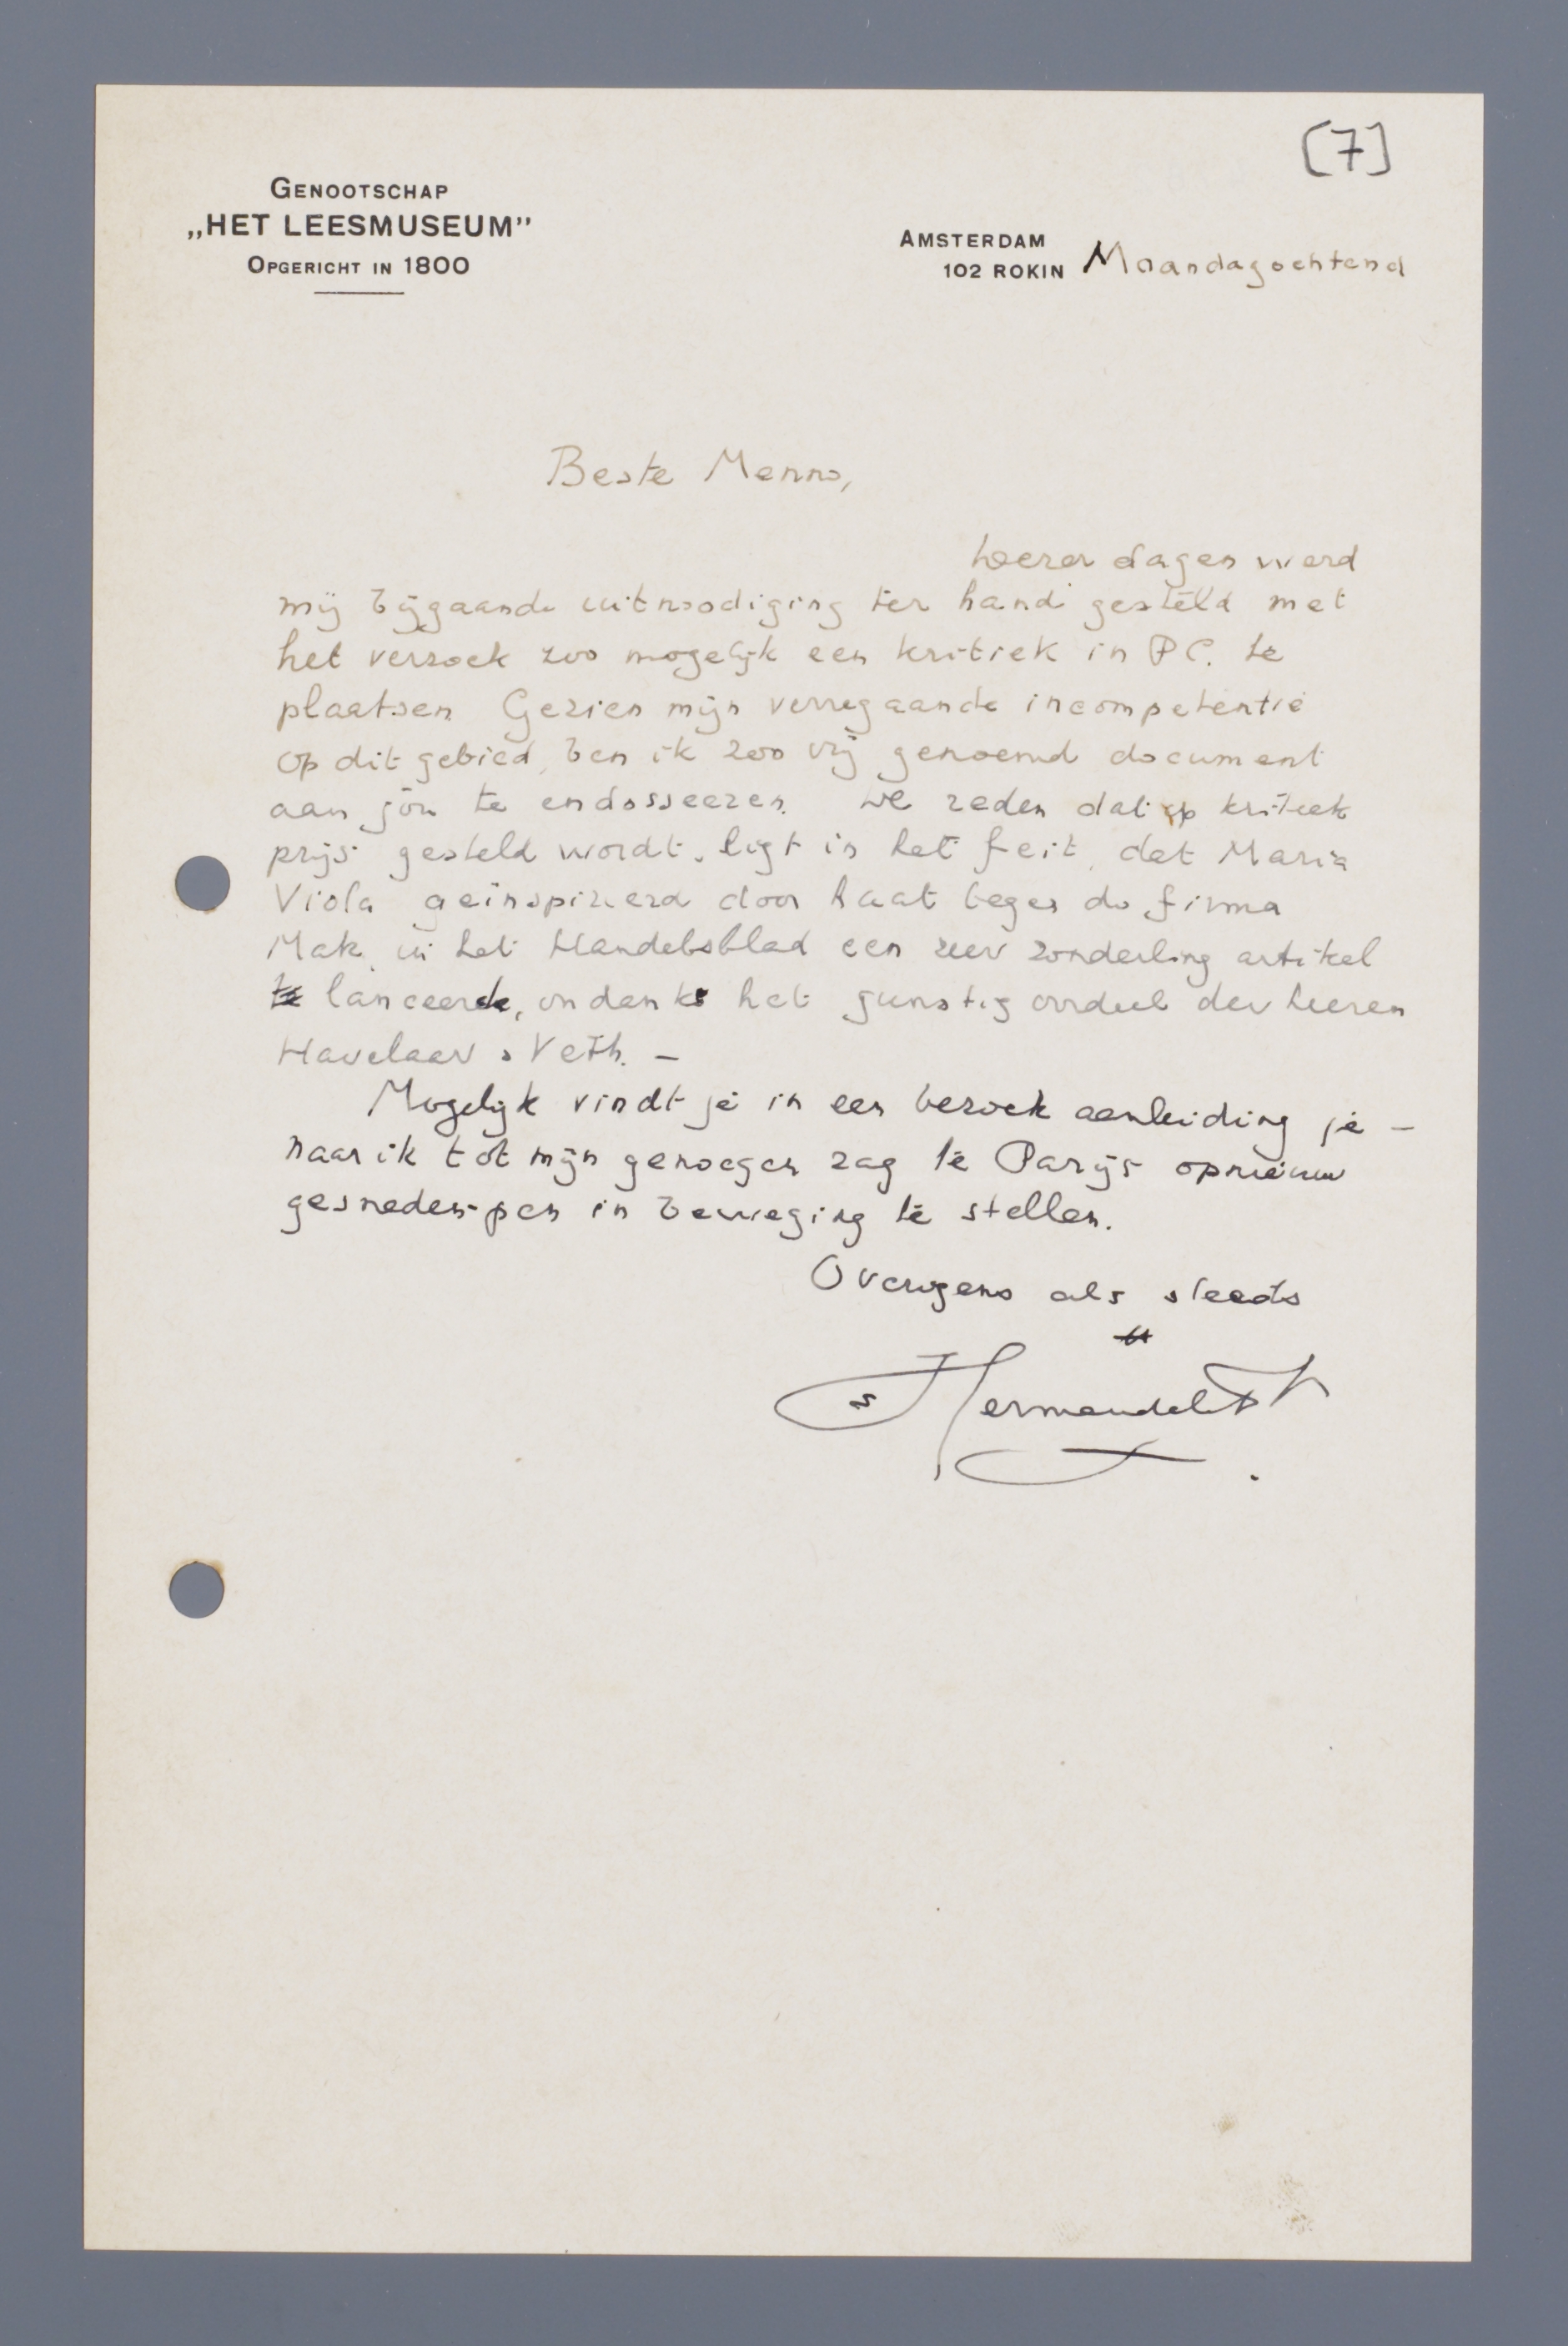 [7]
GENOOTSCHAP
„HET LEESMUSEUM”
OPGERICHT IN 1800
AMSTERDAM
102 ROKIN Maandagochtend
Beste Menno,
Dezer dagen werd
mij bijgaande uitnoodiging ter hand gesteld met
het verzoek zoo mogelijk een kritiek in P.C. te
plaatsen. Gezien mijn verregaande incompetentie
op dit gebied, ben ik zoo vrij genoemd document
aan jou te endosseeren. De reden dat op kritiek
prijs gesteld wordt, ligt in het feit, dat Maria
Viola geïnspireerd door haat tegen de firma
Mak, in het Handelsblad een zeer zonderling artikel
te lanceerde, ondanks het gunstig oordeel der heeren
Havelaar & Veth. —
Mogelijk vindt je in een bezoek aanleiding je -
naar ik tot mijn genoegen zag te Parijs opnieuw
gesneden-pen in beweging te stellen.
Overigens als steeds
tt